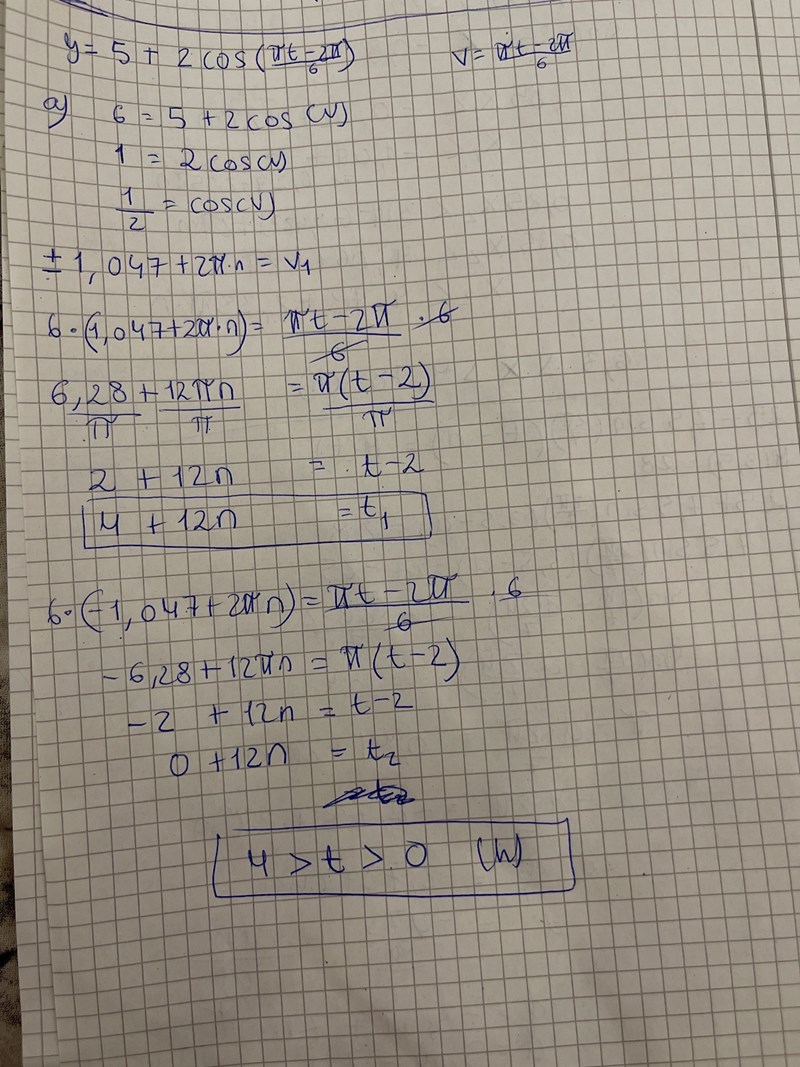 y = 5 + 2 cos (πt-2π/6) v = πt-2π/6
a) 6 = 5 + 2 cos (v)
1 = 2 cos(v)
1/2 = cos(v)
± 1,047 + 2π·n = v₁
6·(1,047+2π·n) = πt-2π/6 · 6
6,28/π + 12πn/π = π(t-2)/π
2 + 12n = t-2
4 + 12n = t₁
6·(-1,047+2πn) = πt-2π/6 · 6
-6,28+12πn = π(t-2)
-2 + 12n = t-2
0 +12n = t₂
4 > t > 0 (h)